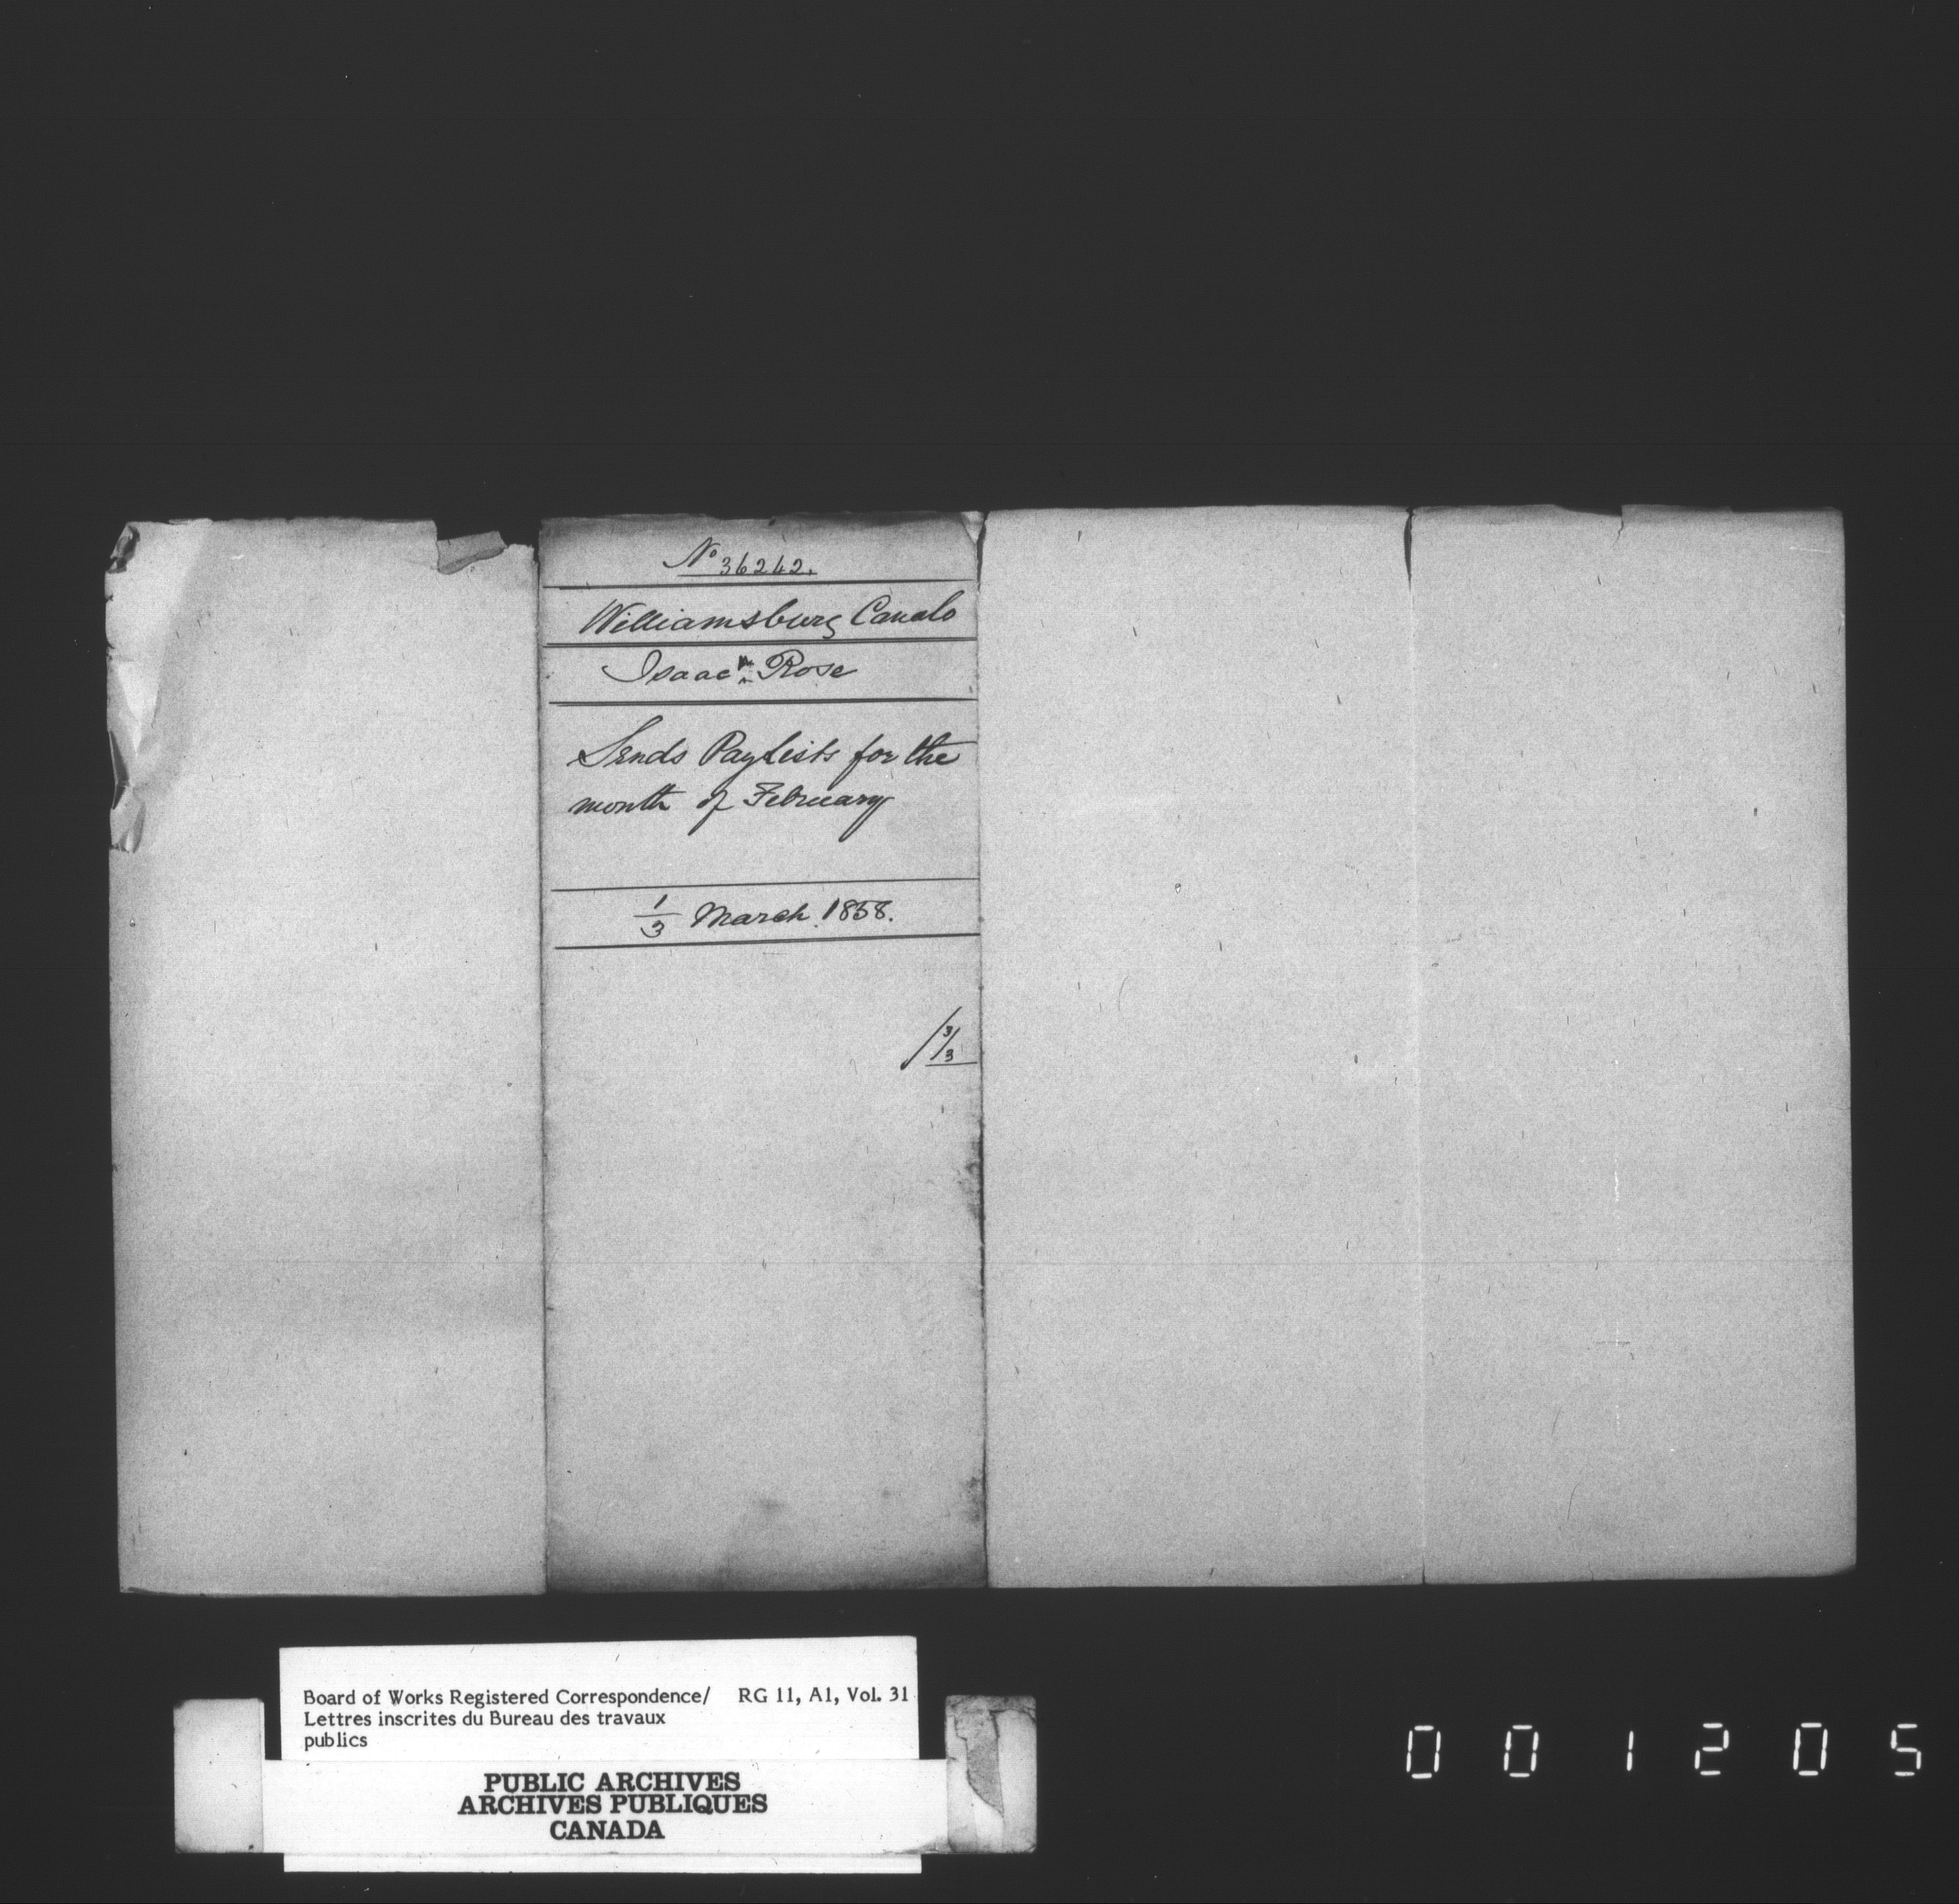 No 36242.
Williamsburg Canals
Isaac N. Rose
Sends Paylists for the
month of February
1/3 March 1858.
/3/3
Board of Works Registered Correspondence/ RG 11, A1, Vol. 31
Lettres inscrites du Bureau des travaux
publics
PUBLIC ARCHIVES
ARCHIVES PUBLIQUES
CANADA
001205